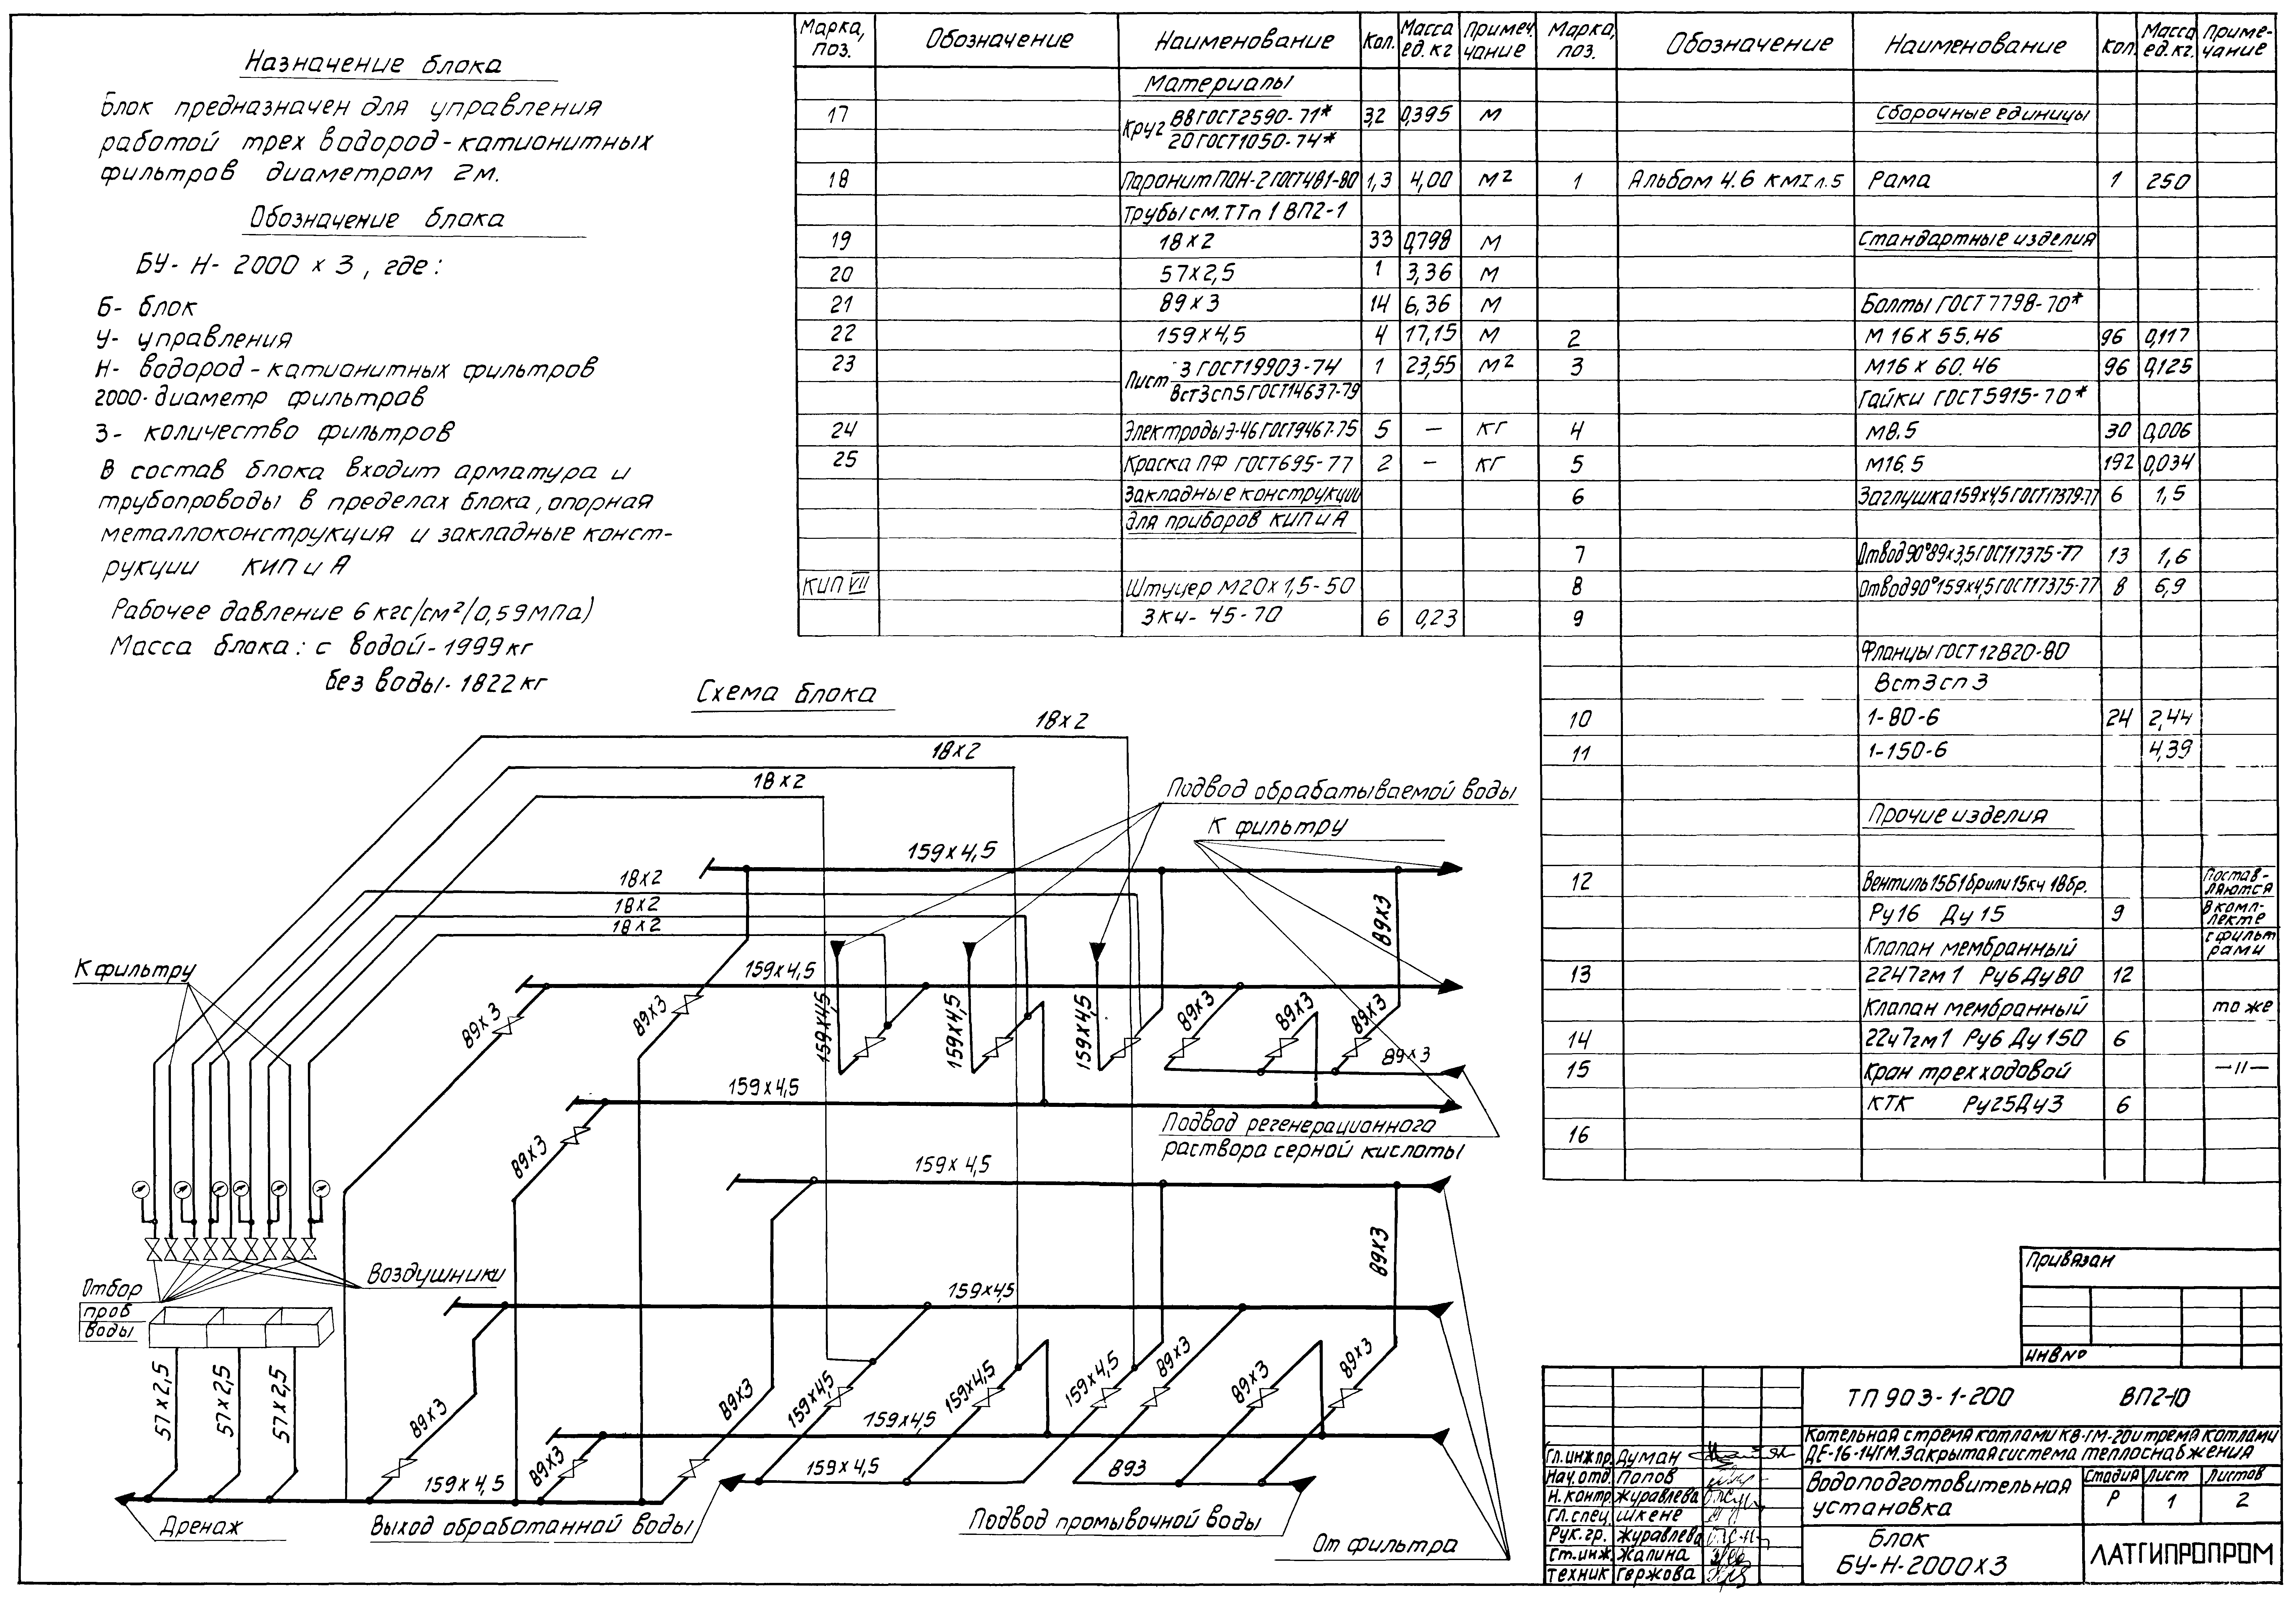 Назначение блока
Блок предназначен для управления
работой трех водород-катионитных
фильтров диаметром 2м.
Обозначение блока
БУ-Н-2000 х 3, где:
Б- блок
У- управления
Н- водород-катионитных фильтров
2000- диаметр фильтров
3- количество фильтров
В состав блока входит арматура и
трубопроводы в пределах блока, опорная
металлоконструкция и закладные конст-
рукции КИП и А
Рабочее давление 6 кгс/см²/0,59 МПа)
Масса блока: с водой-1999 кг
без воды-1822 кг
Марка, поз. Обозначение Наименование Кол. Масса ед. кг Примечание
Материалы
17 Круг В8 ГОСТ 2590-71* 3,2 0,395 м
20 ГОСТ 1050-74*
18 Паронит ПОН-2 ГОСТ 481-80 1,3 4,00 м²
Трубы см. ТТп 1 ВП2-1
19 18х2 33 0,798 м
20 57х2,5 1 3,36 м
21 89х3 14 6,36 м
22 159х4,5 4 17,15 м
23 Лист 3 ГОСТ 19903-74 1 23,55 м²
Вст3сп5 ГОСТ 14637-79
24 Электроды Э-46 ГОСТ 9467-75 5 — кг
25 Краска ПФ ГОСТ 695-77 2 — кг
Закладные конструкции
для приборов КИП и А
КИП VII Штуцер М20х1,5-50
3кч-45-70 6 0,23
Марка, поз. Обозначение Наименование Кол. Масса ед. кг. Приме-чание
Сборочные единицы
1 Альбом 4.6 КМI л.5 Рама 1 250
Стандартные изделия
Болты ГОСТ 7798-70*
2 М16х55.46 96 0,117
3 М16х60.46 96 0,125
Гайки ГОСТ 5915-70*
4 М8.5 30 0,006
5 М16.5 192 0,034
6 Заглушка 159х4,5 ГОСТ 17379-77 6 1,5
7 Отвод 90°89х3,5 ГОСТ 17375-77 13 1,6
8 Отвод 90°159х4,5 ГОСТ 17375-77 8 6,9
9
Фланцы ГОСТ 12820-80
Вст3сп3
10 1-80-6 24 2,44
11 1-150-6 4,39
Прочие изделия
12 Вентиль 15Б1бр или 15кч 18бр. Постав-
ляются
Ру16 Ду15 9 в комп-
лекте
Клапан мембранный с фильт
рами
13 22ч7гм1 Ру6 Ду80 12
Клапан мембранный то же
14 22ч7гм1 Ру6 Ду150 6
15 Кран трехходовой —II—
КТК Ру25Ду3 6
16
Схема блока
18х2
18х2
18х2
Подвод обрабатываемой воды
К фильтру
159х4,5
18х2
18х2
18х2
89х3
К фильтру
159х4,5
89х3
89х3
159х4,5
159х4,5
159х4,5
89х3
89х3
89х3
89х3
159х4,5
89х3
Подвод регенерационного
раствора серной кислоты
159х4,5
89х3
Воздушники
Отбор
проб
воды
159х4,5
57х2,5
57х2,5
57х2,5
89х3
89х3
159х4,5
159х4,5
159х4,5
89х3
89х3
89х3
159х4,5
159х4,5
89х3
159х4,5
893
Дренаж
Выход обработанной воды
Подвод промывочной воды
От фильтра
Привязан
ИНВ №
ТП 903-1-200 ВП2-10
Котельная с тремя котлами КВ-ГМ-20 и тремя котлами
ДЕ-16-14ГМ. Закрытая система теплоснабжения
Гл. инж. пр. Думан
Нач. отд. Попов
Н. контр. Журавлева
Гл. спец. Шкене
Рук. гр. Журавлева
Ст. инж. Жалина
Техник Гержова
Водоподготовительная
установка
Стадия Лист Листов
Р 1 2
Блок
БУ-Н-2000х3
ЛАТГИПРОПРОМ